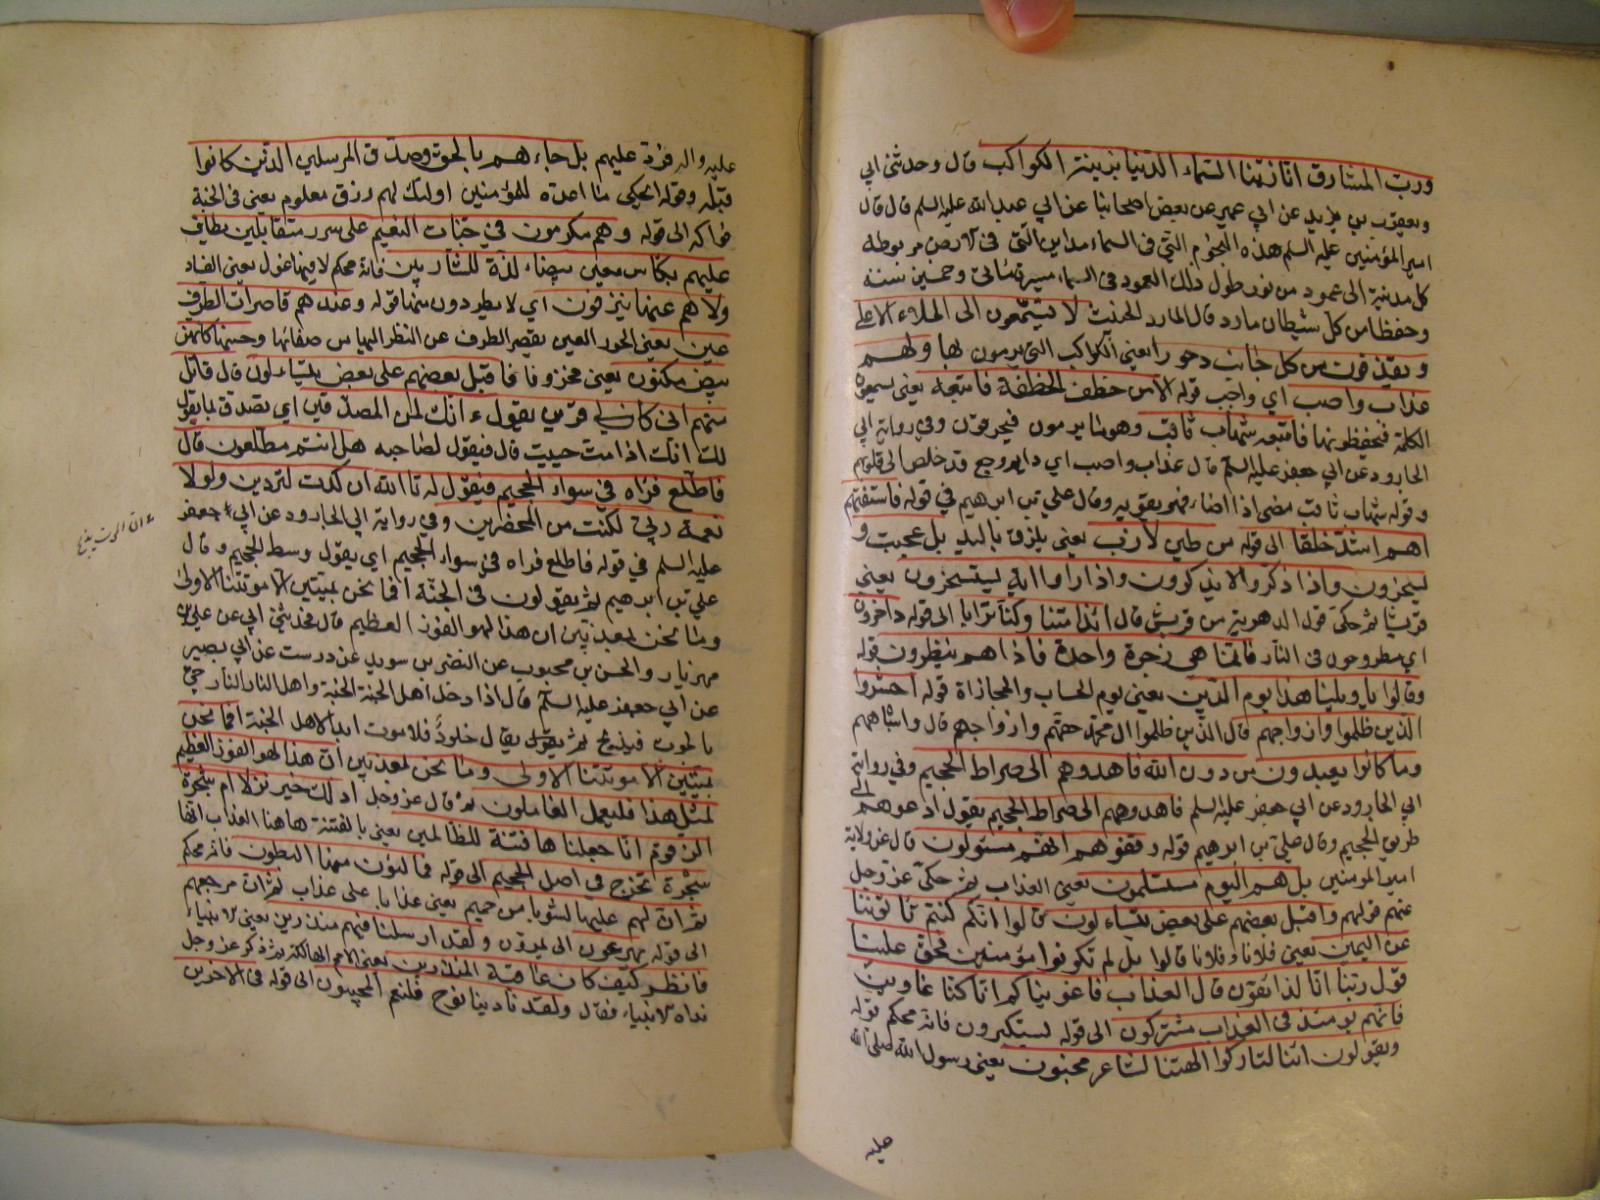 ورب المشارق انا زينا السماء الدنيا بزينة الكواكب قال وحدثني ابي
ويعقوب بن يزيد عن ابي عمير عن بعض اصحابنا عن ابي عبد الله عليه السلم قال قال
امير المؤمنين عليه السلم هذه النجوم التي في السماء مداين التي في الارض مربوطة
كل مدينة الى عمود من نور طول ذلك العمود في السماء مسيرة مائتي وخمسين سنة
وحفظا من كل شيطان مارد قال المارد الخبيث لا يسمعون الى الملاء الاعلى
ويقذفون من كل جانب دحورا يعني الكواكب التي يرمون بها ولهم
عذاب واصب اي واجب قوله الا من خطف الخطفة فاتبعه يعني يسمعون
الكلمة فيحفظونها فاتبعه شهاب ثاقب وهو ما يرمون فيحرقون وفي رواية ابي
الجارود عن ابي جعفر عليه السلم قال عذاب واصب اي دايم وجع قد خلص الى قلوبهم
وقوله شهاب ثاقب مضى اذا اضاء فهو يقويه وقال علي بن ابرهيم في قوله فاستفتهم
اهم اشد خلقا الى قوله من طين لازب يعني يلزق باليد بل عجبت و
يسخرون واذا ذكروا لا يذكرون واذا راوا اية يستسخرون يعني
قريشا ثم حكى قول الدهرية من قريش قال ائذا متنا وكنا ترابا الى قوله داخرون
اي مطروحون في النار فانما هي زجرة واحدة فاذا هم ينظرون قوله
وقالوا يا ويلنا هذا يوم الدين يعني يوم الحساب والمجازاة قوله احشروا
الذين ظلموا وازواجهم قال الذين ظلموا ال محمد حقهم وازواجهم قال واشباههم
وما كانوا يعبدون من دون الله فاهدوهم الى صراط الجحيم وفي رواية
ابي الجارود عن ابي جعفر عليه السلم فاهدوهم الى صراط الجحيم يقول ادعوهم الى
طريق الجحيم وقال علي بن ابرهيم قوله وقفوهم انهم مسئولون قال عن ولاية
امير المؤمنين بل هم اليوم مستسلمون يعني العذاب ثم حكى عز وجل
عنهم قولهم واقبل بعضهم على بعض يتساءلون قالوا انكم كنتم تاتوننا
عن اليمين يعني فلانا وفلانا قالوا بل لم تكونوا مؤمنين فحق علينا
قول ربنا انا لذائقون قال العذاب فاغويناكم انا كنا غاوين
فانهم يومئذ في العذاب مشتركون الى قوله يستكبرون فانه محكم قوله
ويقولون ائنا لتاركوا الهتنا لشاعر مجنون يعني رسول الله صلى الله
عليه
عليه واله فرد عليهم بل جاءهم بالحق وصدق المرسلين الذين كانوا
قبله وقوله الحكى ما اعده للمؤمنين اولئك لهم رزق معلوم يعني في الجنة
فواكه الى قوله وهم مكرمون في جنات النعيم على سرر متقابلين يطاف
عليهم بكاس معين بيضاء لذة للشاربين فانه محكم لا فيها غول يعني الفساد
ولا هم عنها ينزفون اي لا يطردون منها قوله وعندهم قاصرات الطرف
عين يعني الحور العين يقصر الطرف عن النظر اليها من صفائها وحسنها كانهن
بيض مكنون يعني مخزونا فاقبل بعضهم على بعض يتساءلون قال قائل
منهم اني كان لي قرين يقول ءانك لمن المصدقين اي تصدق بما يقول
لك انك اذا مت حييت قال فيقول لصاحبه هل انتم مطلعون قال
فاطلع فراه في سواء الجحيم فيقول له تا الله ان كدت لتردين ولولا
نعمة ربي لكنت من المحضرين وفي رواية ابي الجارود عن ابي جعفر
عليه السلم في قوله فاطلع فراه في سواء الجحيم اي يقول وسط الجحيم وقال
علي بن ابرهيم ثم يقولون في الجنة افما نحن بميتين الا موتتنا الاولى
وما نحن بمعذبين ان هذا لهو الفوز العظيم قال فحدثني ابي عن علي بن
مهزيار والحسن بن محبوب عن النضر بن سويد عن درست عن ابي بصير
عن ابي جعفر عليه السلم قال اذا دخل اهل الجنة الجنة واهل النار النار جيئ
بالموت فيذبح ثم يقول يقال خلود فلا موت ابدا لاهل الجنة افما نحن
بميتين الا موتتنا الاولى وما نحن بمعذبين ان هذا لهو الفوز العظيم
لمثل هذا فليعمل العاملون ثم قال عز وجل اذلك خير نزلا ام شجرة
الزقوم انا جعلناها فتنة للظالمين يعني بالفتنة هاهنا العذاب انها
شجرة تخرج في اصل الجحيم الى قوله فمالئون منها البطون فانه محكم
ثم ان لهم عليها لشوبا من حميم يعني عذابا على عذاب ثم ان مرجعهم
الى قوله يهرعون الى يمرون ولقد ارسلنا فيهم منذرين يعني الانبياء
فانظر كيف كان عاقبة المنذرين يعني الامم الهالكة ثم ذكر عز وجل
نداء الانبياء فقال ولقد نادينا نوح فلنعم المجيبون الى قوله في الاخرين